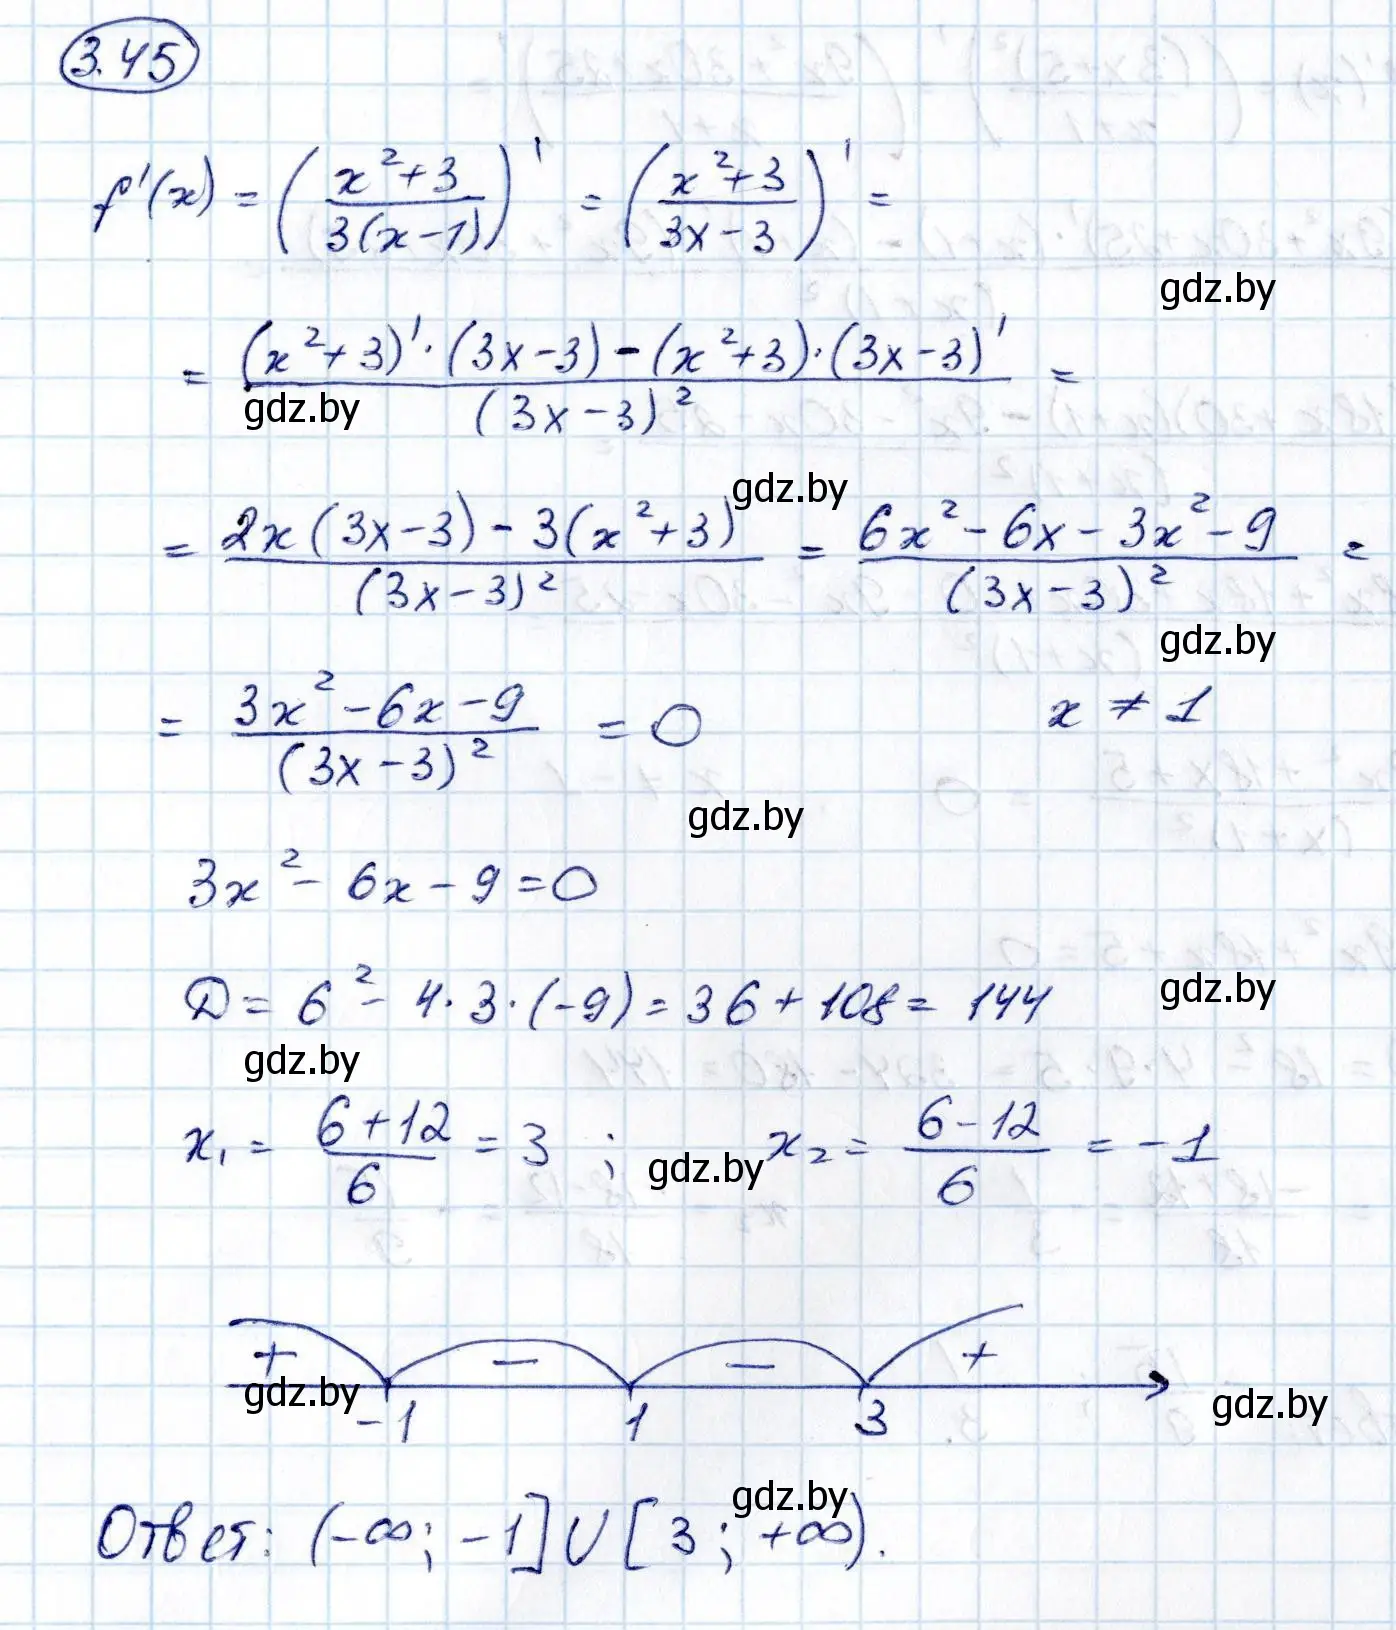 3.45
f'(x) = ( (x²+3) / (3(x-1)) )' = ( (x²+3) / (3x-3) )' =
gdz.by
= ( (x²+3)'·(3x-3) - (x²+3)·(3x-3)' ) / (3x-3)² =
gdz.by
gdz.by
= ( 2x(3x-3) - 3(x²+3) ) / (3x-3)² = ( 6x² - 6x - 3x² - 9 ) / (3x-3)² =
gdz.by
= ( 3x² - 6x - 9 ) / (3x-3)² = 0 x ≠ 1
gdz.by
3x² - 6x - 9 = 0
D = 6² - 4·3·(-9) = 36 + 108 = 144 gdz.by
gdz.by
x₁ = (6+12)/6 = 3 ; gdz.by x₂ = (6-12)/6 = -1
+ - - +
gdz.by gdz.by
-1 1 3
gdz.by
Ответ: (-∞; -1] ∪ [3; +∞).